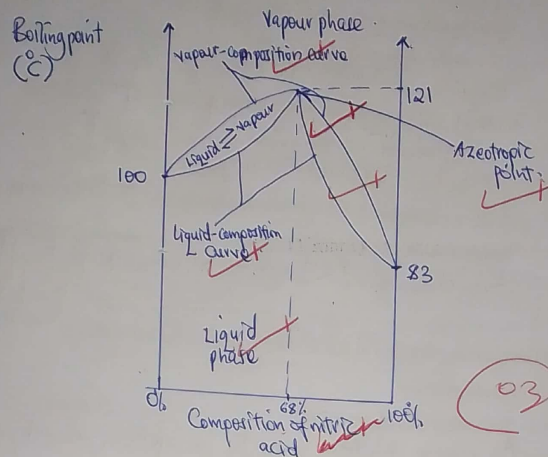 Boiling point
(°C)
Vapour phase
Vapour-composition curve
Liquid ⇌ Vapour
121
Azeotropic
point.
100
Liquid-composition
curve
83
Liquid
phase
03
0%
68%
100%
Composition of nitric
acid